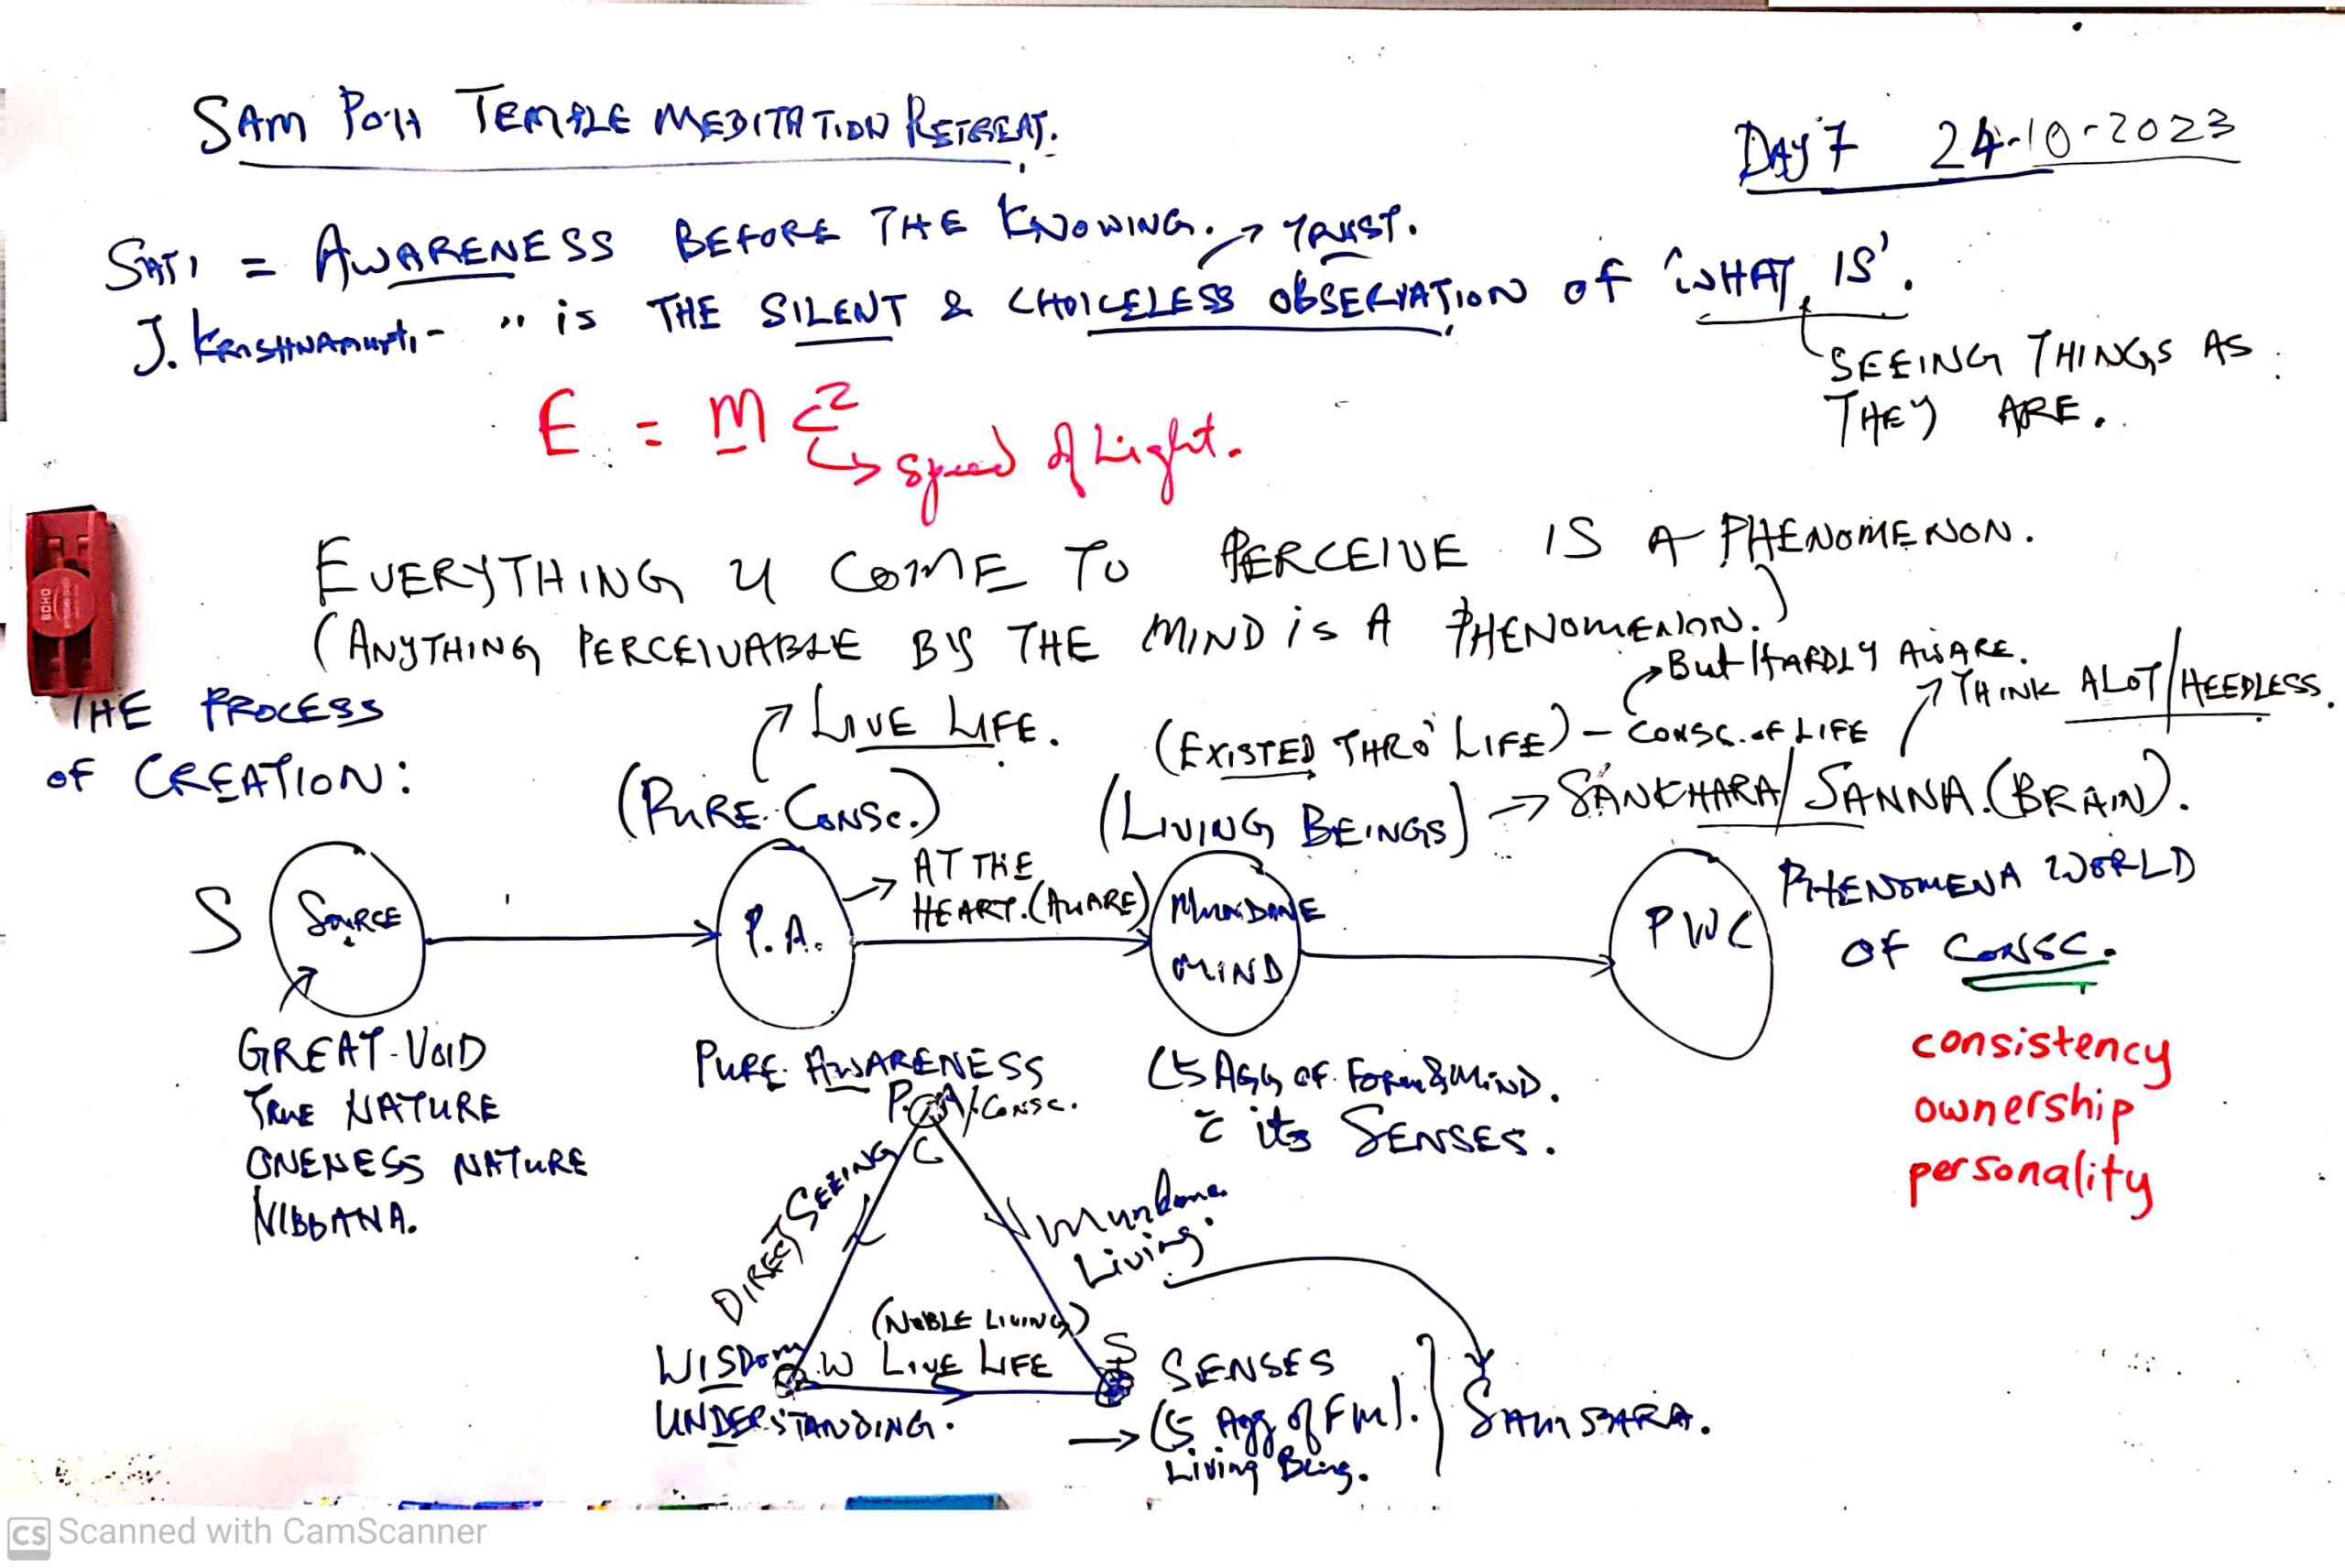 SAM POH TEMPLE MEDITATION RETREAT.
DAY 7 24-10-2023
SATI = AWARENESS BEFORE THE KNOWING. → TRUST.
J. KRISHNAMURTI - " is THE SILENT & CHOICELESS OBSERVATION OF 'WHAT IS'.
SEEING THINGS AS
THEY ARE.
E = mc²
↳ Speed of Light.
EVERYTHING U COME TO PERCEIVE IS A PHENOMENON.
(ANYTHING PERCEIVABLE BY THE MIND is A PHENOMENON.)
BOHO
THE PROCESS
OF CREATION:
LIVE LIFE.
(PURE. CONSC.)
But HARDLY AWARE.
(EXISTED THRO' LIFE) - CONSC. OF LIFE
THINK ALOT/HEEDLESS.
(LIVING BEINGS) → SANKHARA/SANNA.(BRAIN).
S
SOURCE
P.A.
→ AT THE
HEART.(AWARE)
MUNDANE
MIND
PWC
PHENOMENA WORLD
OF CONSC.
GREAT-VOID
TRUE NATURE
ONENESS NATURE
NIBBANA.
PURE AWARENESS
(5 AGG OF. FORM & MIND.
c̄ its SENSES.
consistency
ownership
personality
P.A/Consc.
C
DIRECT SEEING
Mundane
Living.
(NOBLE LIVING)
LIVE LIFE
WISDOM W
UNDERSTANDING.
S
SENSES
→ (5 Agg of FM).
Living Being.
SAMSARA.
CS Scanned with CamScanner